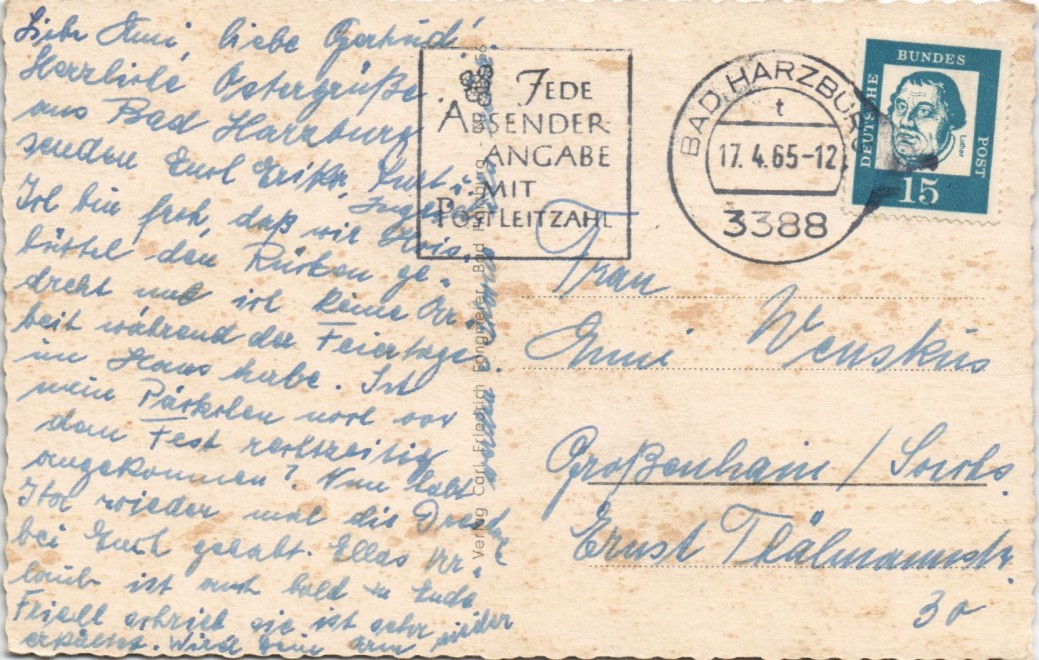 Liebe Emi, liebe Gertrud!
Herzliche Ostergrüße
aus Bad Harzburg
senden Euch Erika, Kurt u.
Inge
Ich bin froh, daß wir
büttel den Rücken ge-
dreht und ich keine Ar-
beit während der Feiertage
im Haus habe. Ist
mein Päckchen noch vor
dem Fest rechtzeitig
angekommen? Nun habt
Ihr wieder mal die
bei Euch gehabt. Ellas Ur-
laub ist auch bald zu Ende
schrieb sie ist sehr wieder
erkältet. Wird Dein Arm
werden
Verlag Carl Friedrich Fangmeier, Bad Harzburg
JEDE
ABSENDER-
ANGABE
MIT
POSTLEITZAHL
BAD HARZBURG
t
17.4.65-12
3388
DEUTSCHE
BUNDES
POST
Luther
15
Frau
Emi Wenskus
Großenhain / Sachs.
Ernst Thälmannstr.
30